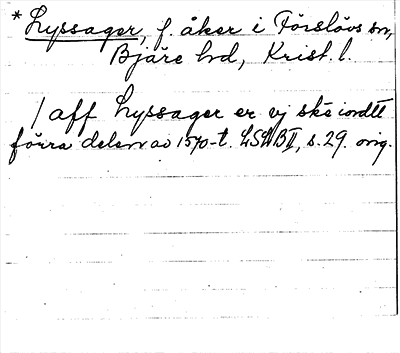 * Lyssager, f. åker i Förslövs sn,
Bjäre hrd, Krist. l.
/ aff Lyssager er vj skè iordtt
förra delen av 1570-t. LSWB II, s. 29. orig.